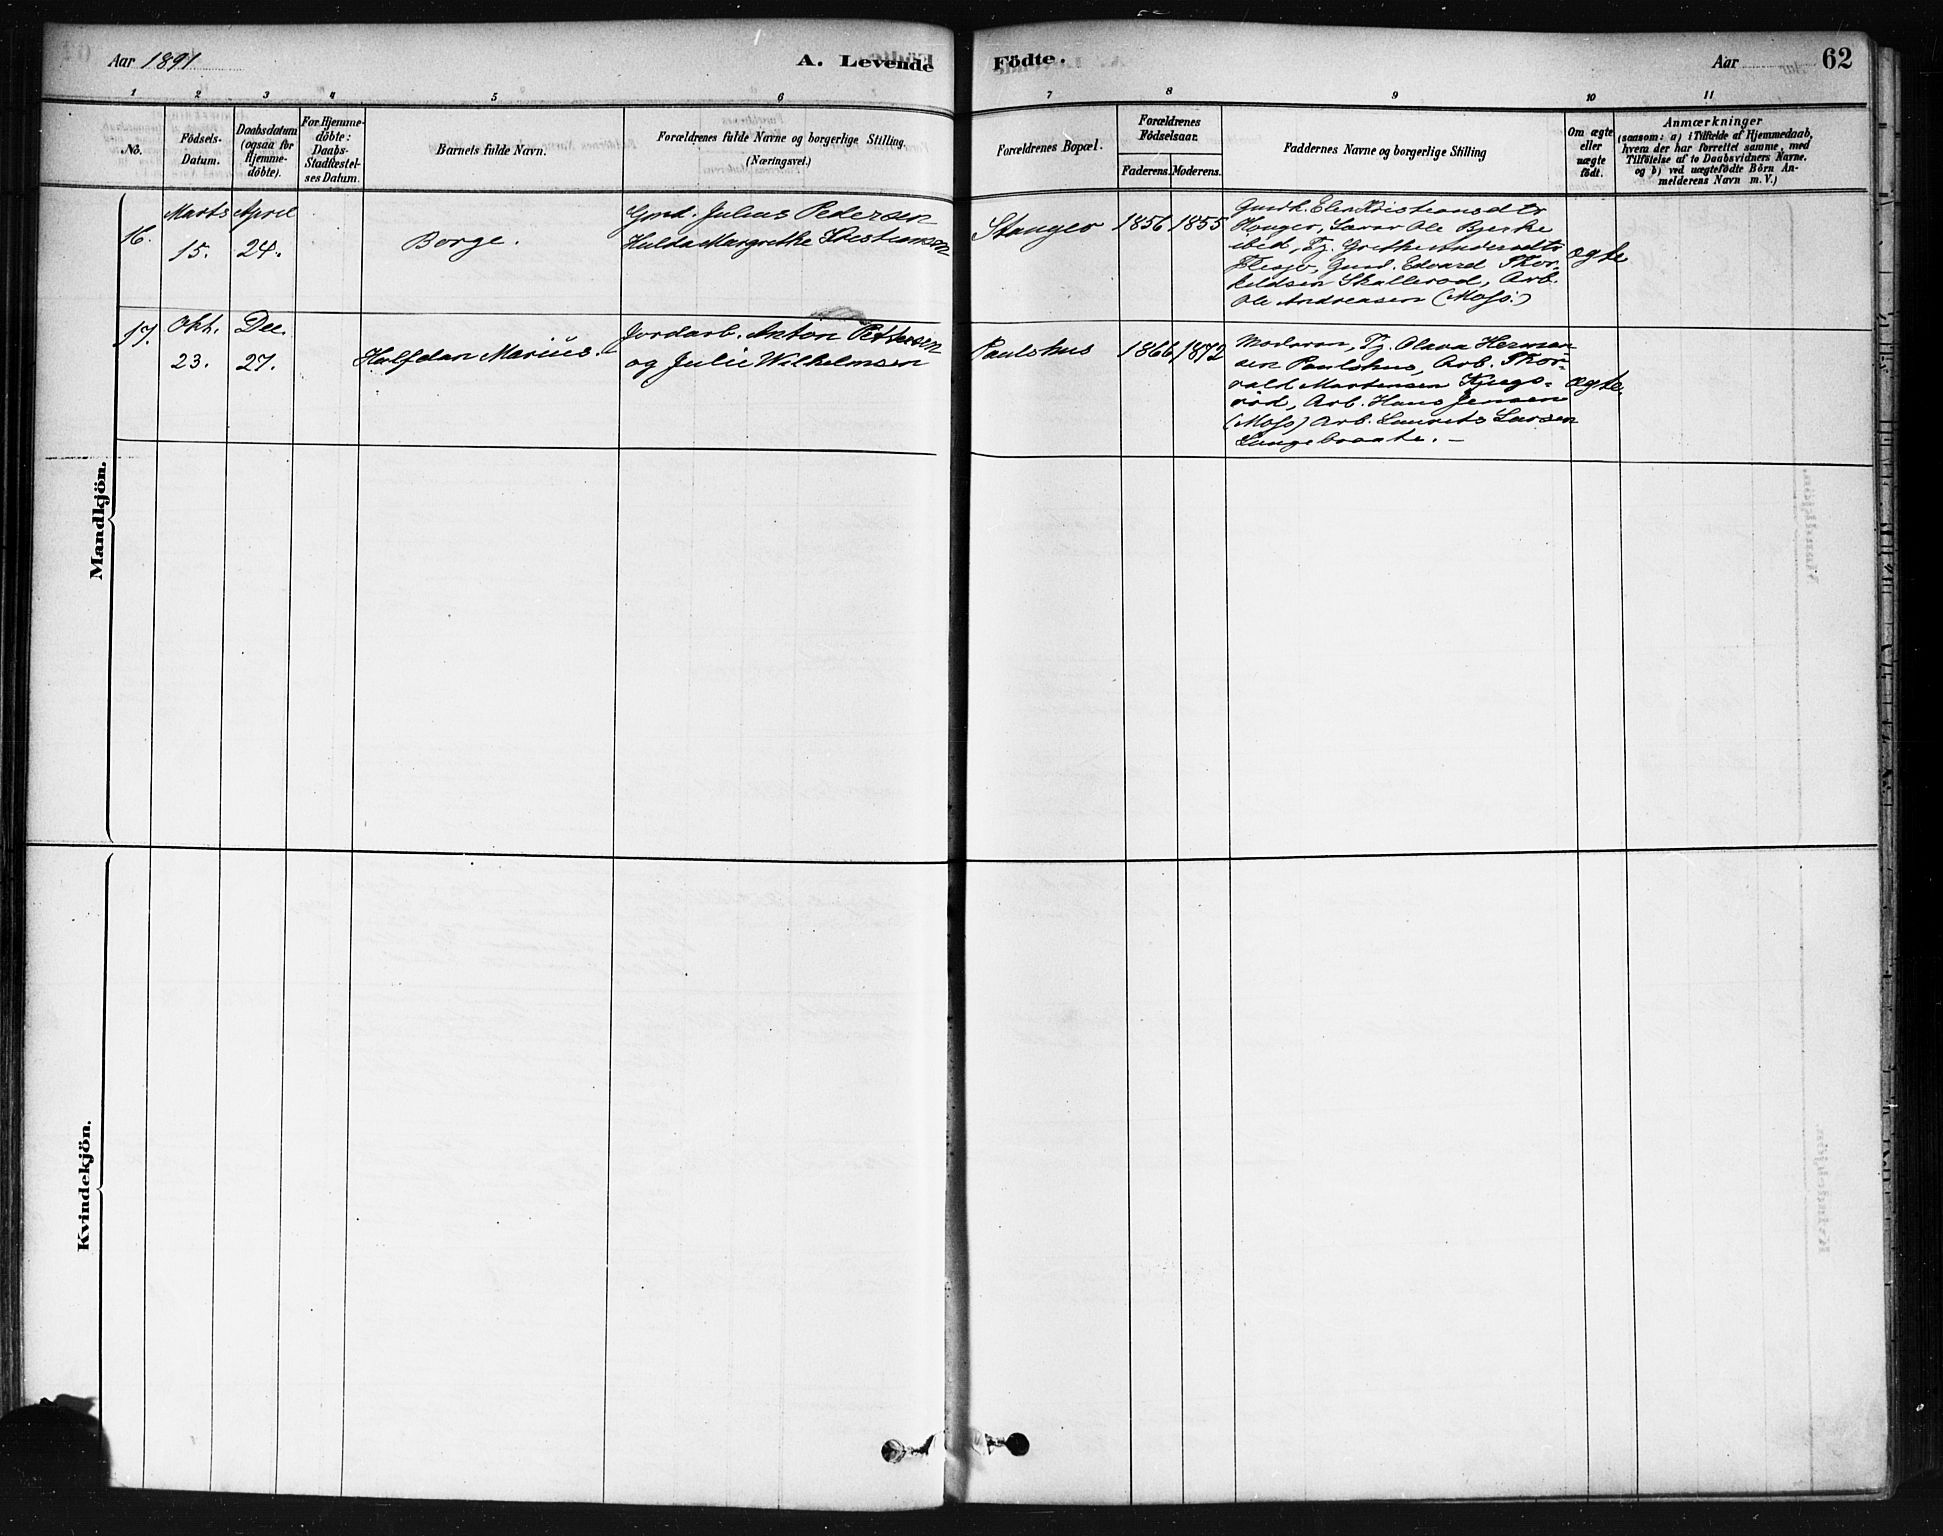 Aar 1891
A. Levende
Födte.
Aar
62
1 2 3 4 5 6 7 8 9 10 11
No.
Födsels-
Datum.
Daabsdatum
(ogsaa for
Hjemme-
döbte).
For Hjemme-
döbte:
Daabs-
Stadfæstel-
ses Datum.
Barnets fulde Navn.
Forældrenes fulde Navne og borgerlige Stilling.
(Næringsvei.)
Forældrenes Bopæl.
Forældrenes
Födselsaar.
Faderens. Moderens.
Faddernes Navne og borgerlige Stilling
Om ægte
eller
uægte
födt.
Anmærkninger
(saasom: a) i Tilfælde af Hjemmedaab,
hvem der har forrettet samme, med
Tilföielse af to Daabsvidners Navne.
og b) ved uægtefödte Börn An-
melderens Navn m. V.)
Mandkjön.
16.
Marts
15.
April
24.
Borge.
Gmd. Julius Pedersen
Hulda Margrethe Kristiansen
Stanger
1856 1855
Gmdk. Elen Kristiansdtr
Hauger, Ole Bjerke
ibid, Tj. Grethe Andersdtr
Flesjø, Gmd. Edvard Thor-
keldsen Skallerød, Arb.
Ole Andreasen (Moss.)
ægte
17.
Okt.
23.
Dec.
27.
Halfdan Marius.
Jordarb. Anton Pettersen
og Julie Wilhelmsen
Paulshus
1866 1872
Moderen, Tj. Olava Herman-
sen Paulshus, Arb. Thor-
vald Martinsen
rød, Arb. Hans Jensen
(Moss) Arb. Laurits Larsen
Langebraate. —
ægte.
Kvindekjön.